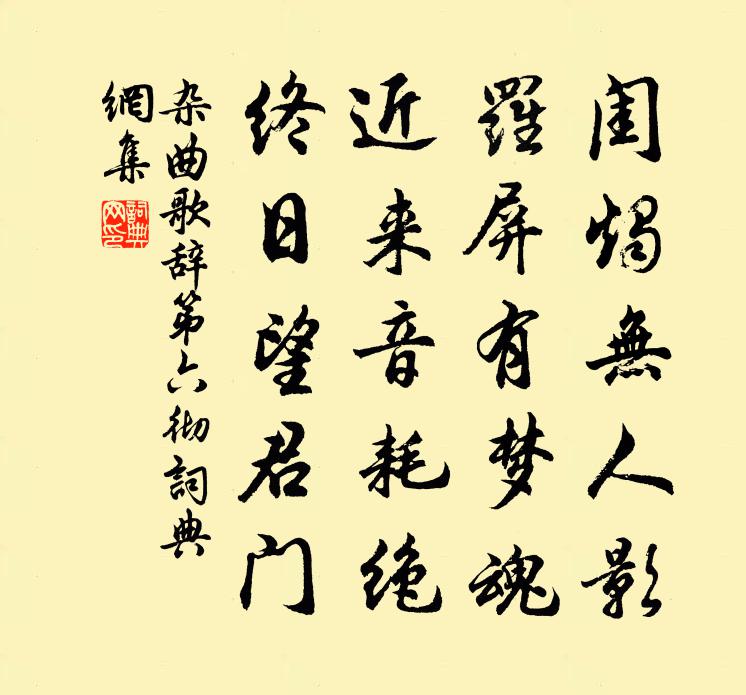 闺烛無人影
羅屏有梦魂
近来音耗绝
终日望君门
杂曲歌辞第六彻詞典
網集
詞典
网印